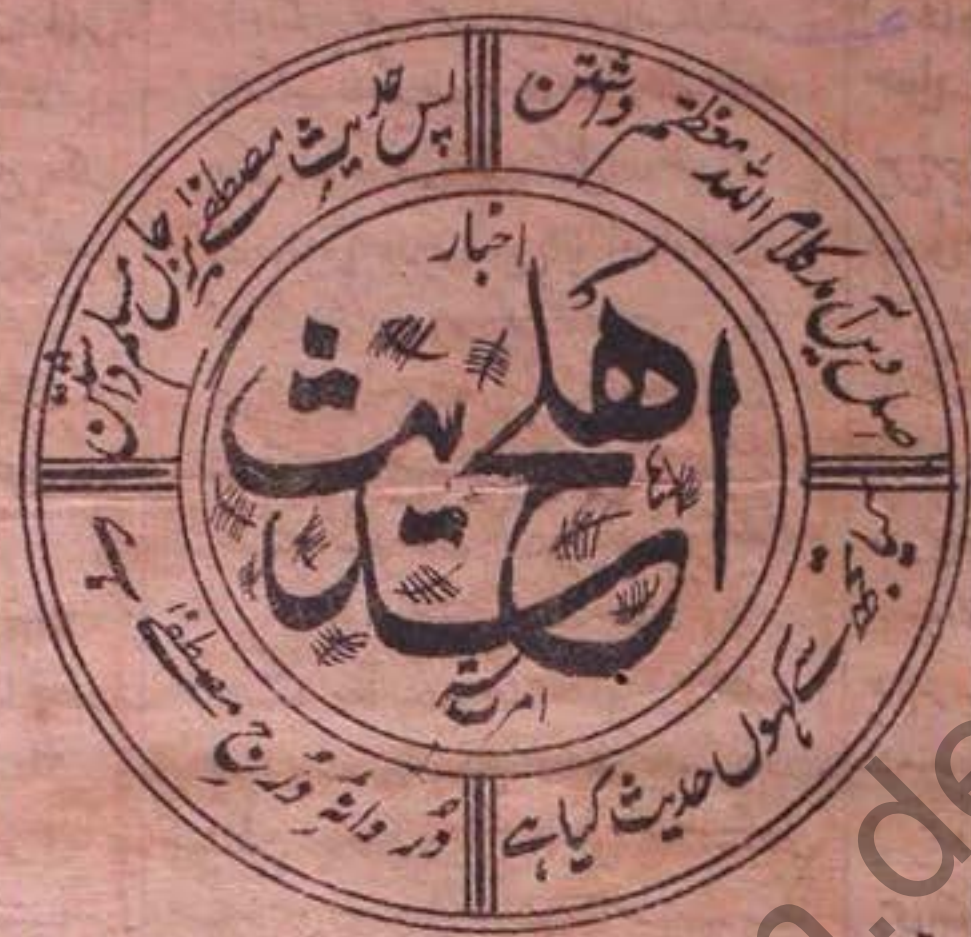 اصل دین آمد کلام اللہ معظم داشتن
پس حدیث مصطفےٰ برجاں مسلم داشتن
اخبار
اهلحدیث
امرتسر
میں تجھ سے کہوں حدیث کیا ہے
دُر دانۂ دُرجِ مصطفےٰ ہے